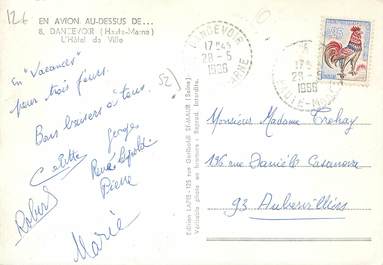 12€
EN AVION AU-DESSUS DE...
8. DANCEVOIR (Haute-Marne)
L'Hôtel de Ville
52
En "Vacances"
pour trois jours.
Bons baisers à tous.
Georges
Pierre
Robert
Marie
Edition LAPIE - 125 rue Garibaldi St-MAUR (Seine)
Véritable photo au bromure - Reprod. Interdite.
DANCEVOIR
17H45
28-5
1966
HAUTE-MARNE
17H45
28-5
1966
HAUTE-MARNE
0,25
Monsieur Madame Trehay
136 rue Danièle Casanova
93 Aubervilliers